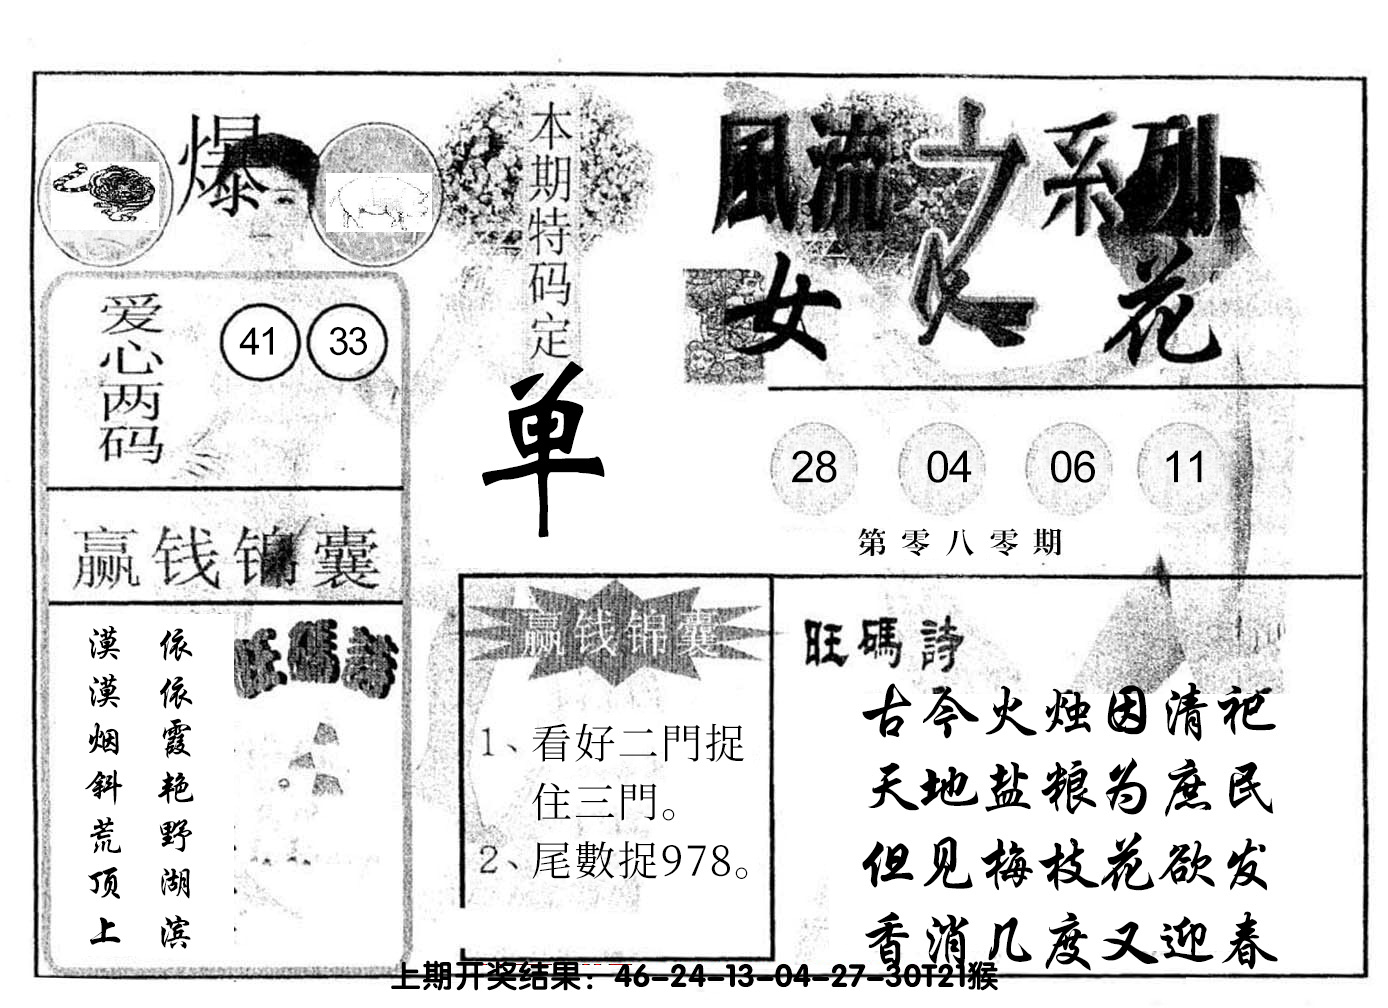 爆
本期特码定
单
風流之系列
女人花
爱心两码
41 33
28 04 06 11
第零八零期
赢钱锦囊
旺碼詩
依依霞艳野湖滨
漠漠烟斜荒顶上
赢钱锦囊
1、看好二門捉
住三門。
2、尾數捉978。
旺碼詩
古今火烛因清祀
天地盐粮为庶民
但见梅枝花欲发
香消几度又迎春
上期开奖结果：46-24-13-04-27-30T21猴